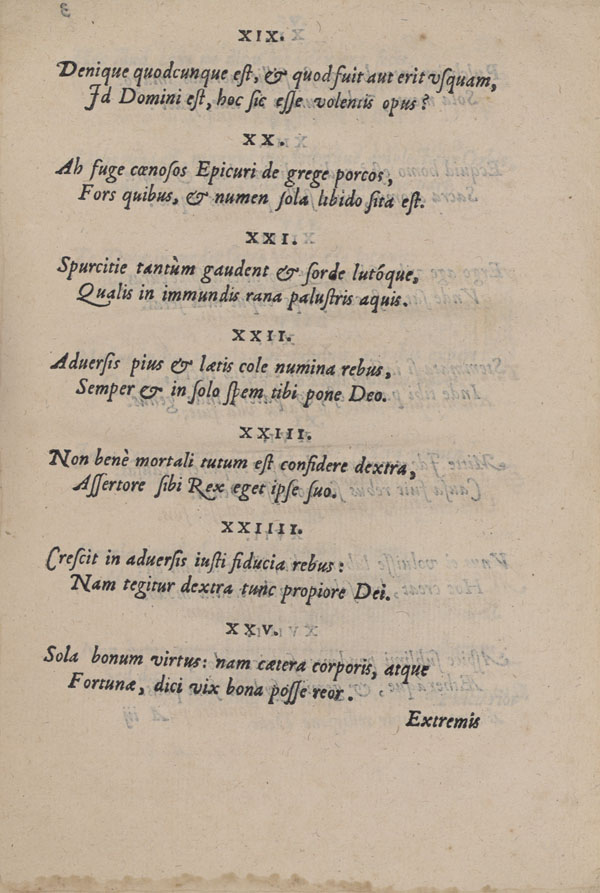 3
XIX.
Denique quodcunque est, & quod fuit aut erit vsquam,
Id Domini est, hoc sic esse volentis opus?
XX.
Ah fuge cœnosos Epicuri de grege porcos,
Fors quibus, & numen sola libido sita est.
XXI.
Spurcitie tantùm gaudent & sorde lutóque,
Qualis in immundis rana palustris aquis.
XXII.
Adversis pius & lætis cole numina rebus,
Semper & in solo spem tibi pone Deo.
XXIII.
Non benè mortali tutum est confidere dextra,
Assertore sibi Rex eget ipse suo.
XXIIII.
Crescit in adversis iusti fiducia rebus:
Nam tegitur dextra tunc propiore Dei.
XXV.
Sola bonum virtus: nam cætera corporis, atque
Fortunæ, dici vix bona posse reor.
Extremis